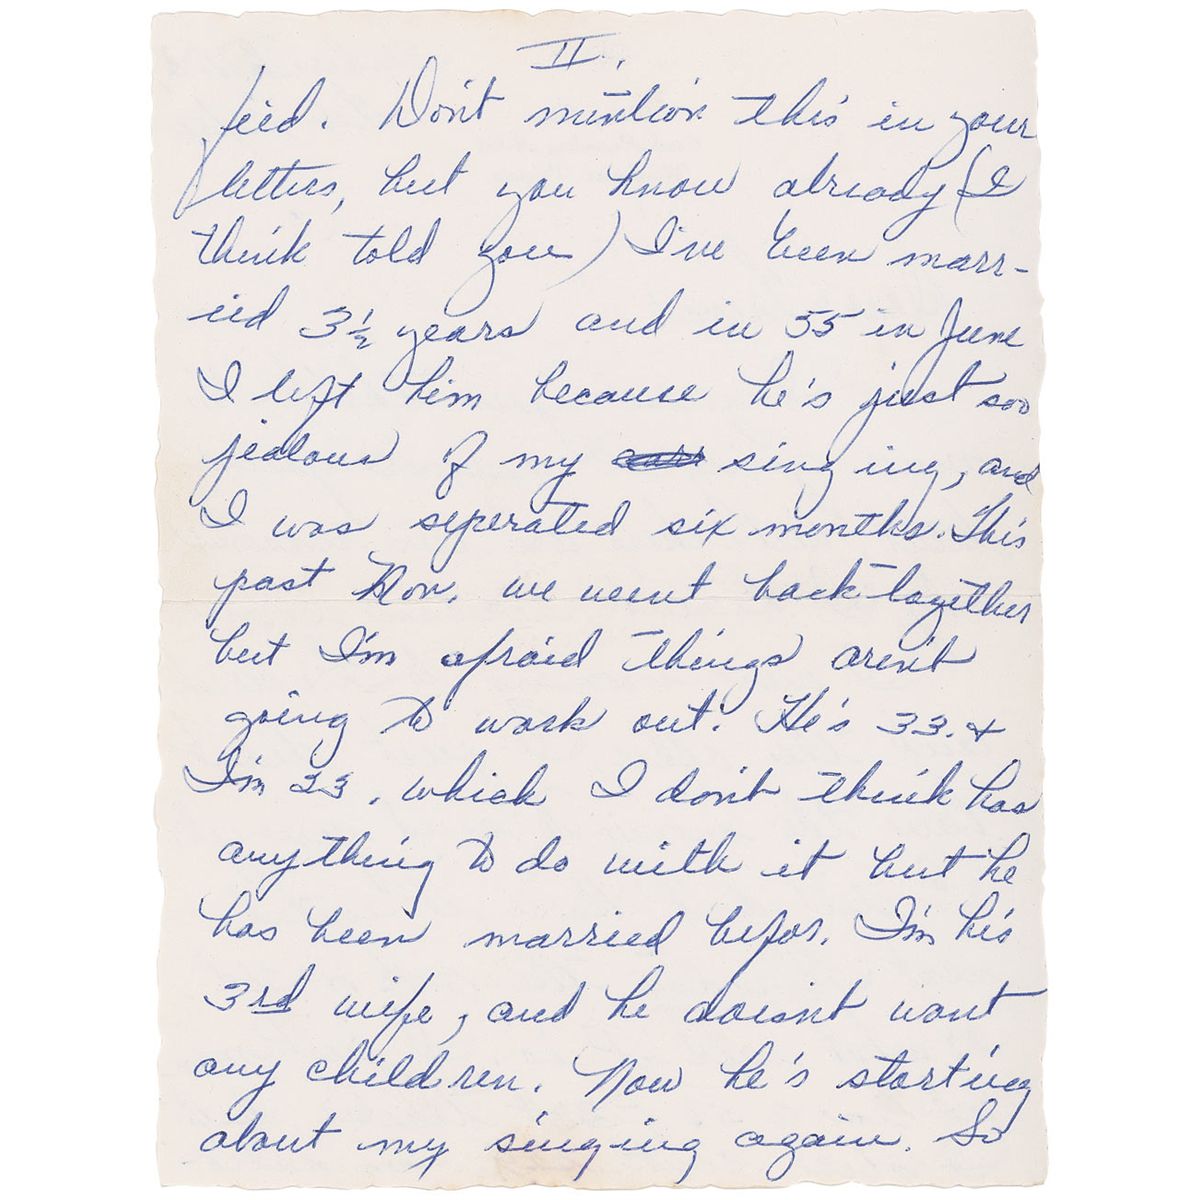 II.
fied. Don't mention this in your
letters, but you know already (I
think told you) I've been marr-
ied 3½ years and in 55 in June
I left him because he's just soo
jealous of my singing, and
I was seperated six months. This
past Nov. we went back together
but I'm afraid things aren't
going to work out. He's 33. &
I'm 23, which I don't think has
anything to do with it but he
has been married befor. I'm his
3rd wife, and he doesn't want
any children. Now he's starting
about my singing again. So